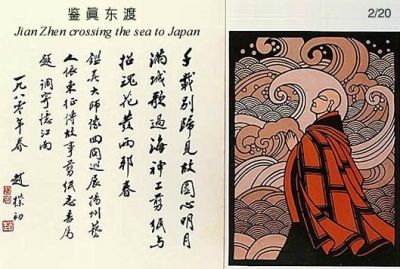 鉴眞东渡
Jian Zhen crossing the sea to Japan
2/20
千载别歸見故園心明月
满城歌過海神工剪纸与
招魂花發兩邦春
鑑真大师像回國巡展揚州藝
人依東征传故事剪纸志喜为
题调寄憶江南
一九八〇年春 赵樸初